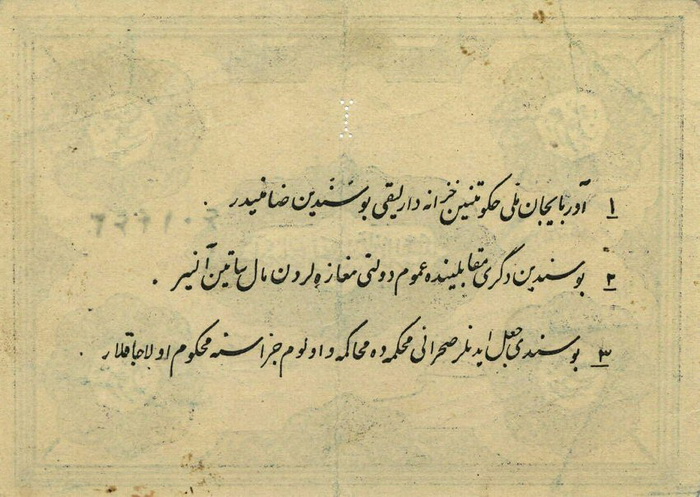 ۱ آذربایجان ملی حکومتنین خزانه داریلیقی بو سندین ضامنیدر .
۲ بو سندین دگری مقابلینده عموم دولتی مغازه لردن مال ساتین آلنیر .
۳ بو سندی جعل ایدنلر صحرائی محکمه ده محاکمه و اولوم جزاسنه محکوم اولاجاقلار .